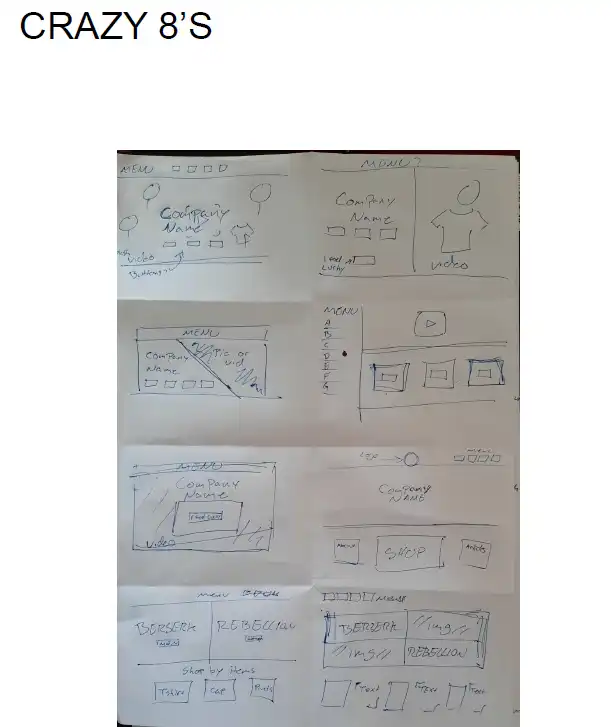 CRAZY 8'S
MENU
Company
Name
video
Buttons
MENU?
Company
Name
Lucky
video
MENU
Company
Name
Pic or
vid
MENU
A
B
C
D
E
F
G
MENU
Company
Name
video
menu
Company
NAME
SHOP
menu
BERSERK
REBELLION
Shop by items
Tshirt
Cap
menu
BERZERK
img
img
REBELLION
Text
Text
Text